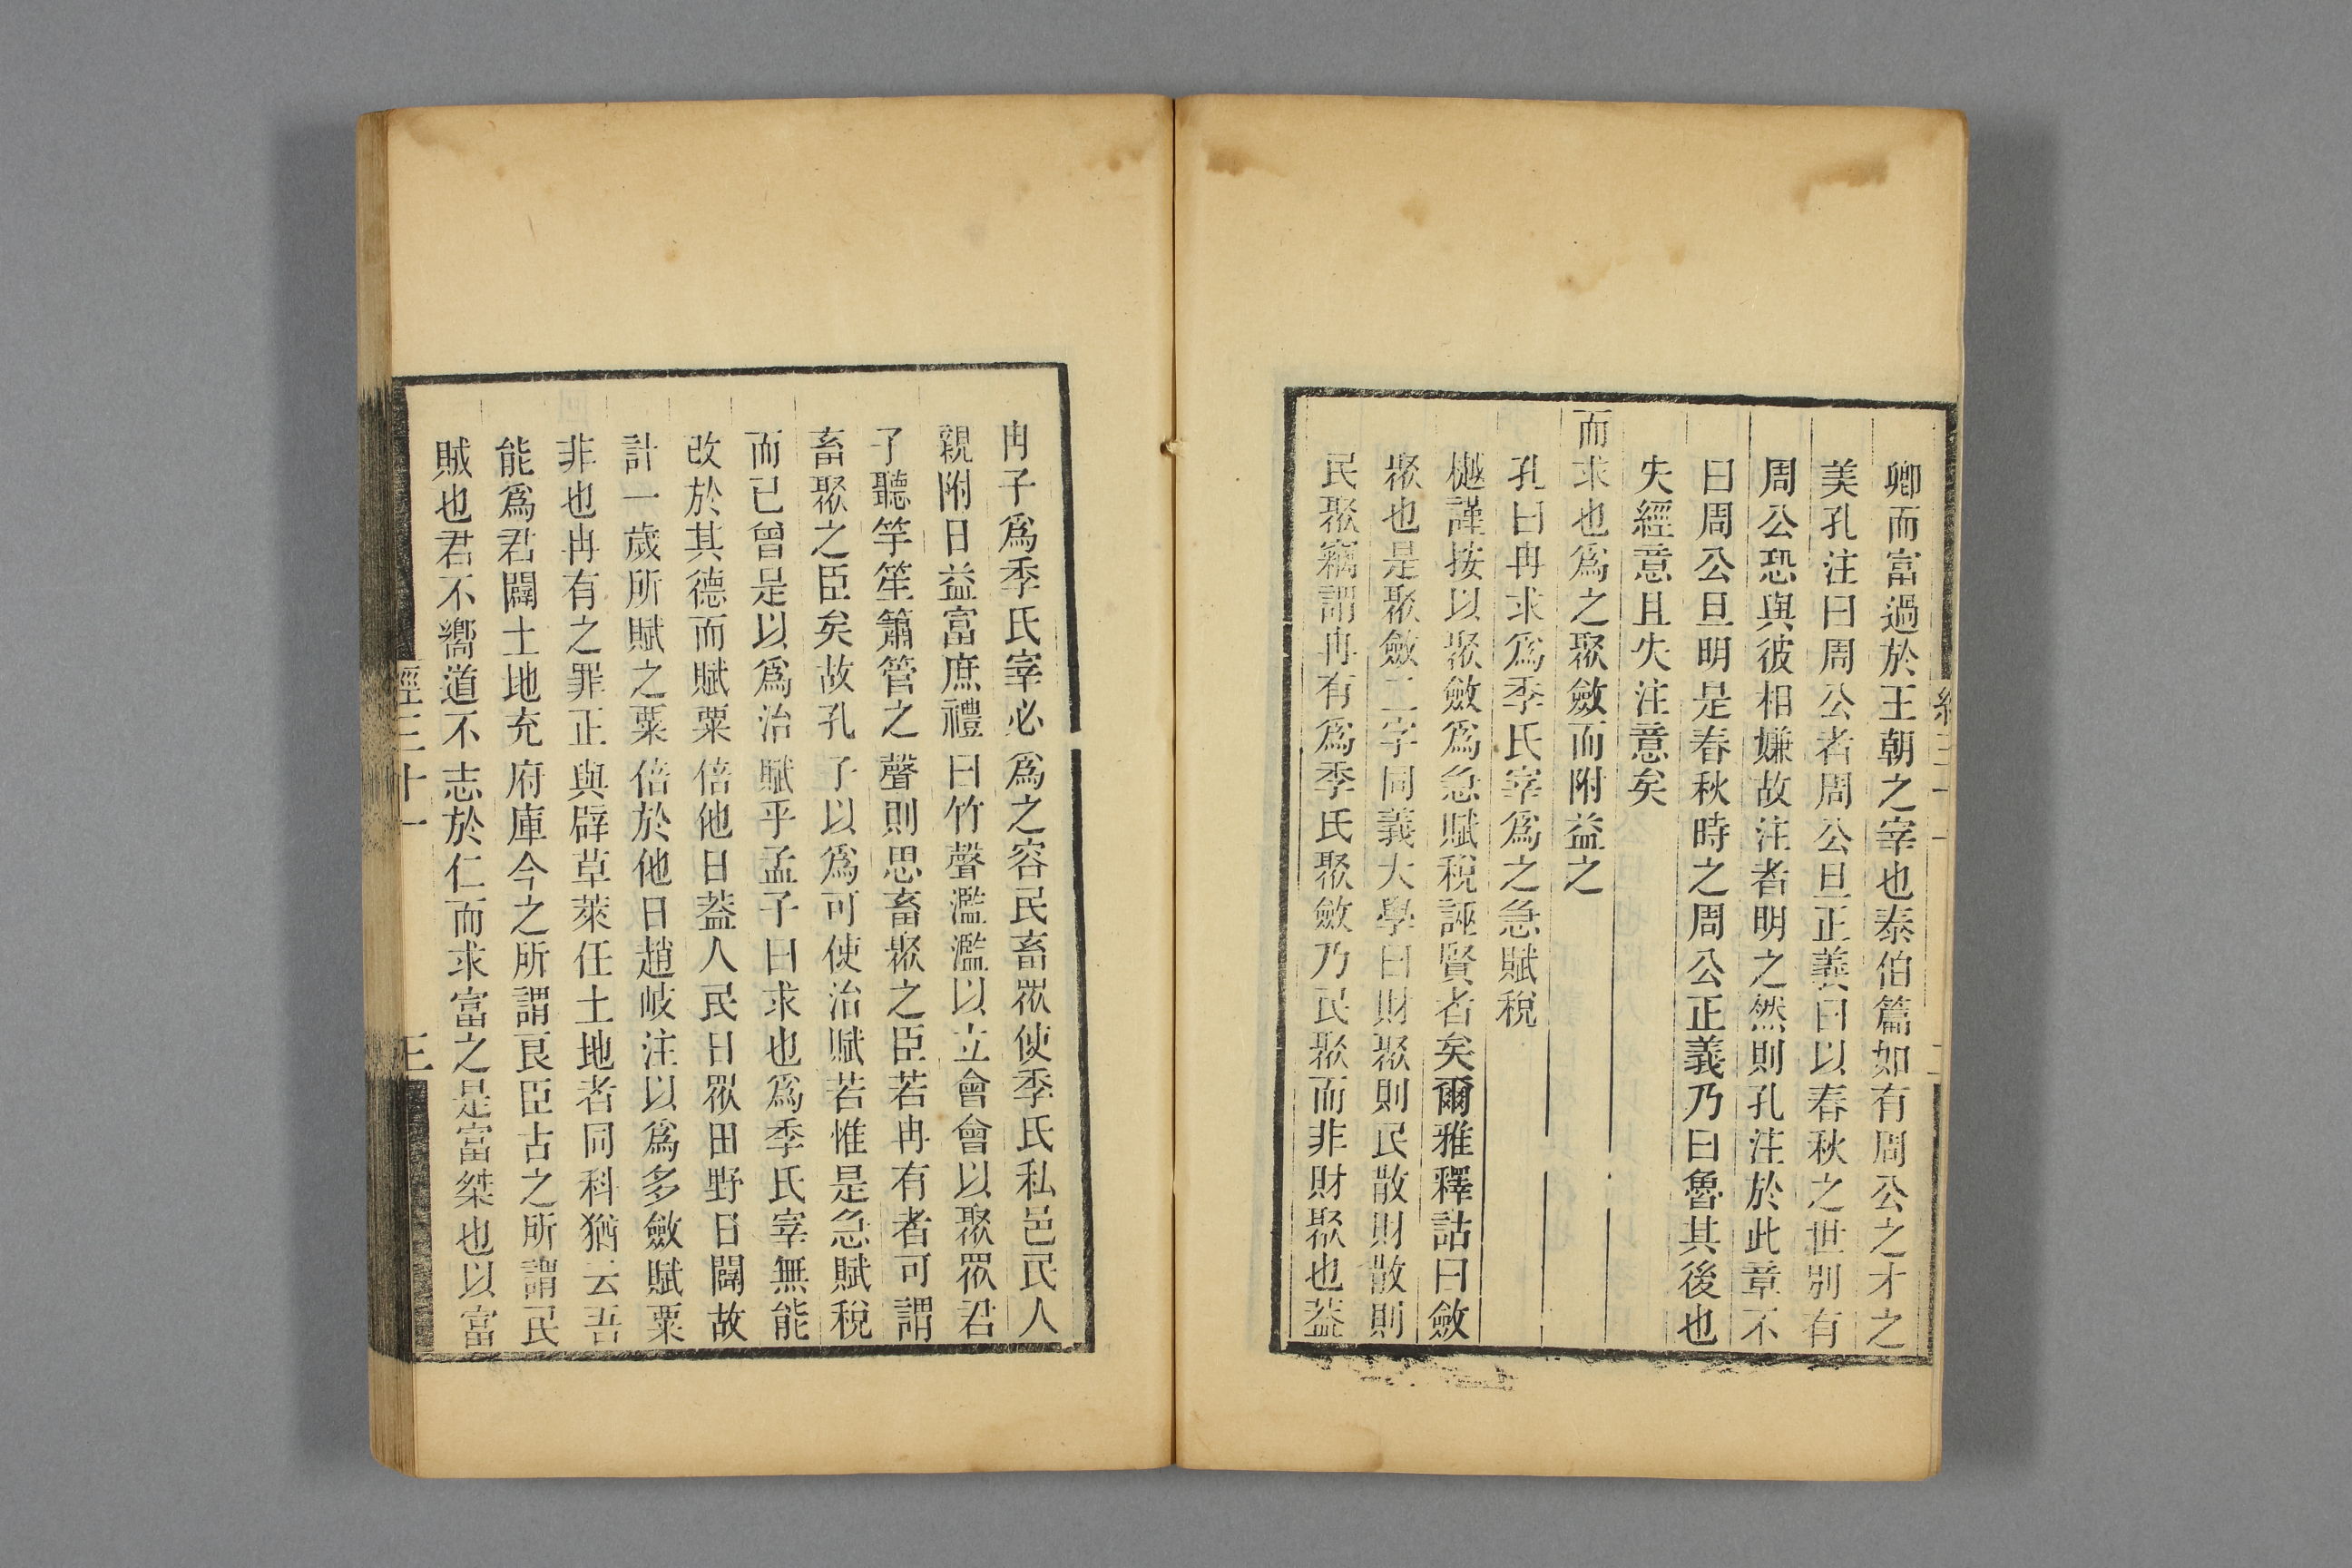 卿而富過於王朝之宰也泰伯篇如有周公之才之
美孔注曰周公者周公旦正義曰以春秋之世別有
周公恐與彼相嫌故注者明之然則孔注於此章不
曰周公旦明是春秋時之周公正義乃曰魯其後也
失經意且失注意矣
而求也爲之聚斂而附益之
孔曰冉求爲季氏宰爲之急賦稅
樾謹按以聚斂爲急賦稅誣賢者矣爾雅釋詁曰斂
聚也是聚斂二字同義大學曰財聚則民散財散則
民聚竊謂冉有爲季氏聚斂乃民聚而非財聚也葢
冉子爲季氏宰必爲之容民畜眾使季氏私邑民人
親附日益富庶禮曰竹聲濫濫以立會會以聚眾君
子聽竽笙簫管之聲則思畜聚之臣若冉有者可謂
畜聚之臣矣故孔子以爲可使治賦若惟是急賦稅
而已曾是以爲治賦乎孟子曰求也爲季氏宰無能
改於其德而賦粟倍他日葢人民日眾田野日闢故
計一歲所賦之粟倍於他日趙岐注以爲多斂賦粟
非也冉有之罪正與辟草萊任土地者同科猶云吾
能爲君闢土地充府庫今之所謂良臣古之所謂民
賊也君不嚮道不志於仁而求富之是富桀也以富
經三十一
三